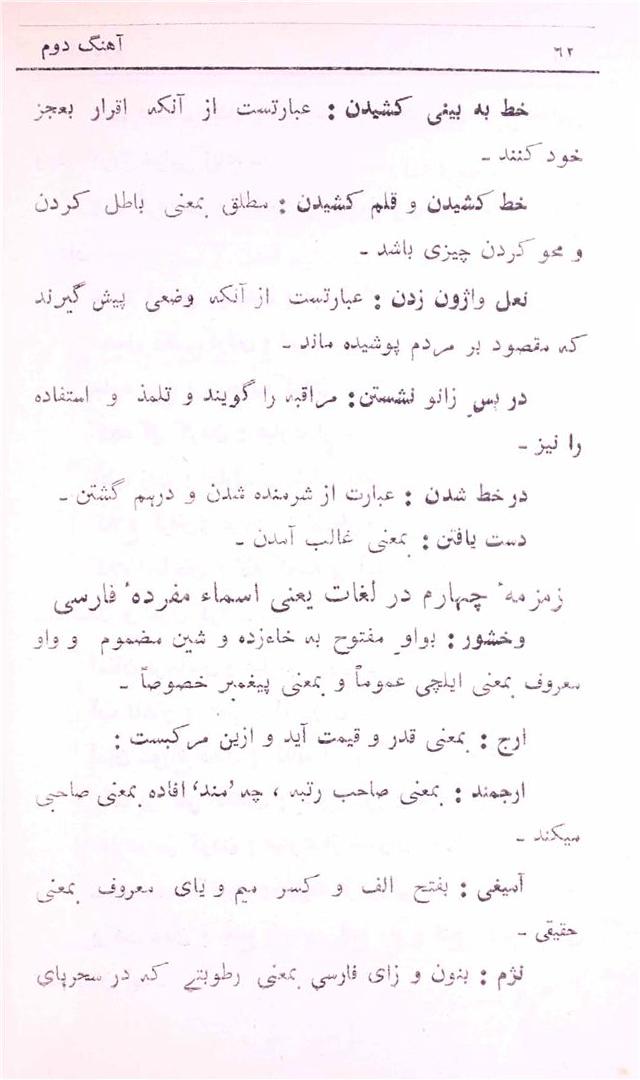 ٦٢ آهنگ دوم
خط به بینی کشیدن : عبارتست از آنکه اقرار بعجز
خود کنند ـ
خط کشیدن و قلم کشیدن : مطلق بمعنی باطل کردن
و محو کردن چیزی باشد ـ
نعل واژون زدن : عبارتست از آنکه وضعی پیش گیرند
که مقصود بر مردم پوشیده ماند ـ
در پسِ زانو نشستن: مراقبه را گویند و تلمذ و استفاده
را نیز ـ
در خط شدن : عبارت از شرمنده شدن و درهم گشتن ـ
دست یافتن : بمعنی غالب آمدن ـ
زمزمهٔ چهارم در لغات یعنی اسماء مفردهٔ فارسی
وخشور : بواوِ مفتوح به خاءزده و شین مضموم و واو
معروف بمعنی ایلچی عموماً و بمعنی پیغمبر خصوصاً ـ
ارج : بمعنی قدر و قیمت آید و ازین مرکبست :
ارجمند : بمعنی صاحب رتبه ، چه ’مند‘ افاده بمعنی صاحبی
میکند ـ
آمیغی : بفتح الف و کسر میم و یای معروف بمعنی
حقیقی ـ
نژم : بنون و زای فارسی بمعنی رطوبتے که در سحرهای